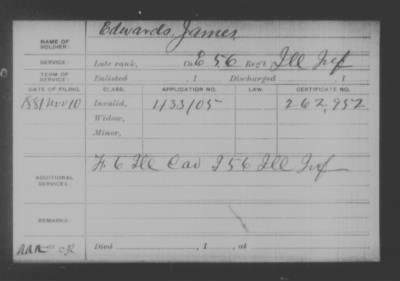 NAME OF SOLDIER: Edwards, James
SERVICE: Late rank, Co. E 56 Reg't Ill Inf
TERM OF SERVICE: Enlisted , 1 Discharged , 1
DATE OF FILING. CLASS. APPLICATION NO. LAW. CERTIFICATE NO.
1881 Nov 10 Invalid, 433105 262,952
Widow,
Minor,
ADDITIONAL SERVICES: H. 6 Ill Cav I 56 Ill Inf
REMARKS:
Died , 1 , at